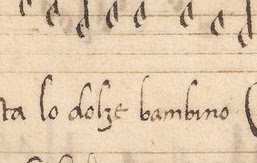 ta lo dolze bambino